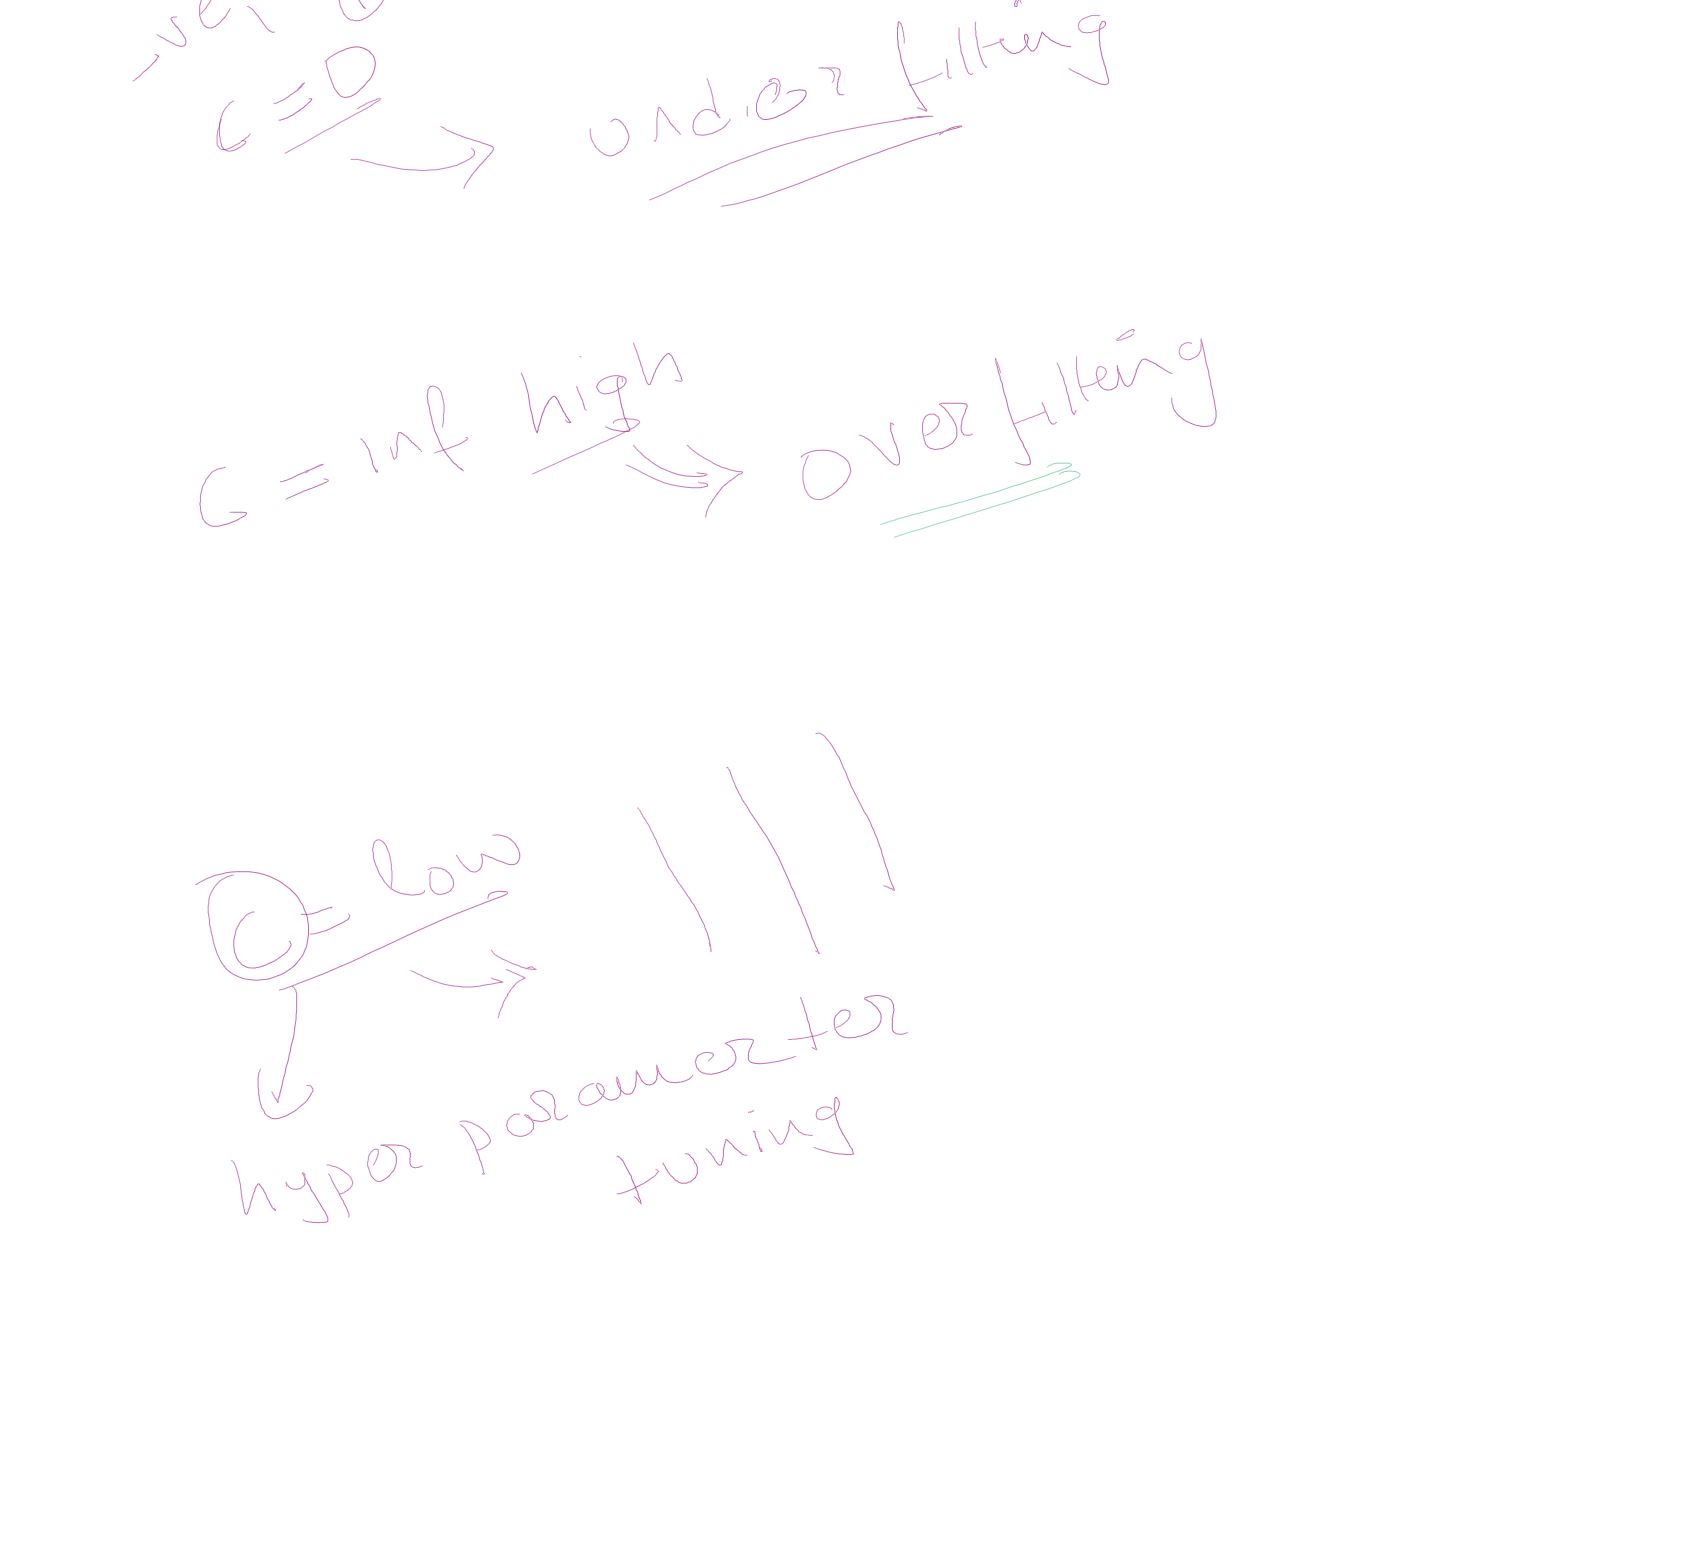 -ve,
C = 0 → under fitting
C = inf high → Overfitting
C = low →
hyper parameter
tuning